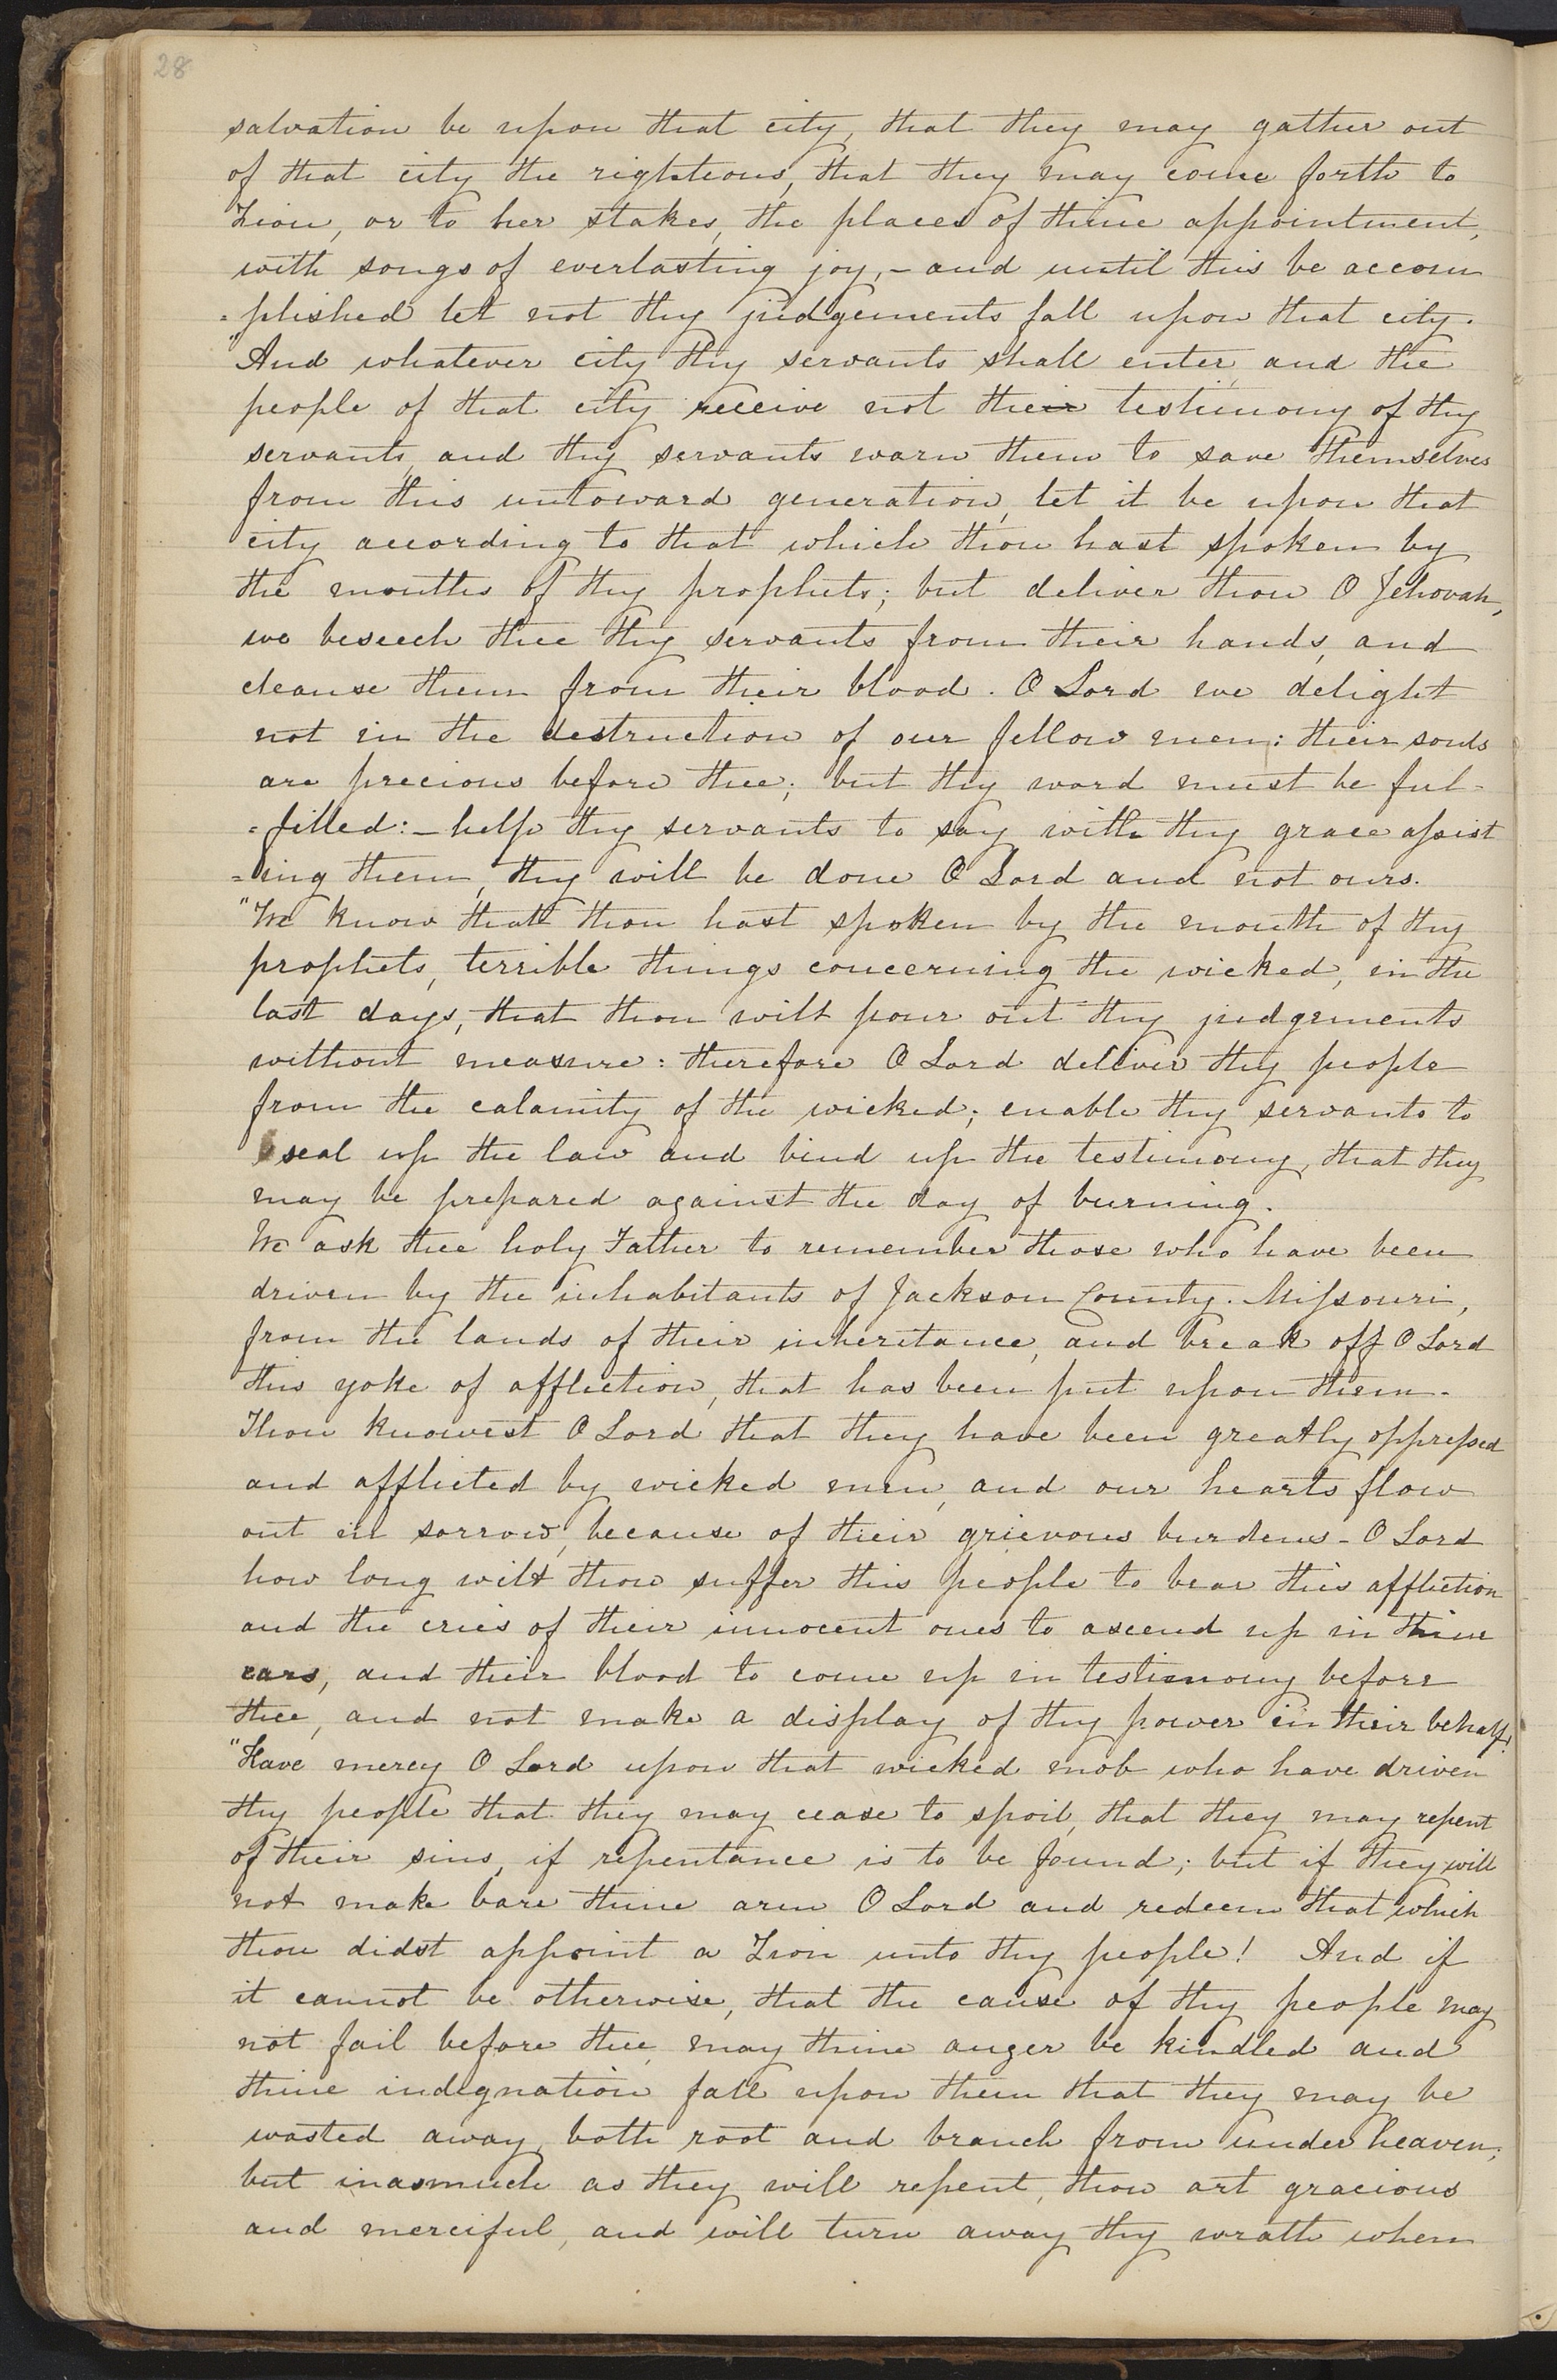 28
salvation be upon that city, that they may gather out
of that city the righteous, that they may come forth to
Zion, or to her stakes, the places of thine appointment,
with songs of everlasting joy,- and until this be accom
=plished let not thy judgements fall upon that city.
"And whatever city thy servants shall enter, and the
people of that city receive not their testimony of thy
servants, and thy servants warn them to save themselves
from this untoward generation, let it be upon that
city according to that which thou hast spoken by
the mouths of thy prophets; but deliver thou O Jehovah,
we beseech thee thy servants from their hands, and
cleanse them from their blood. O Lord we delight
not in the destruction of our fellow men: their souls
are precious before thee; but thy word must be ful-
=filled:- help thy servants to say with thy grace assist
=ing them, thy will be done O Lord and not ours.
"We know that thou hast spoken by the mouth of thy
prophets, terrible things concerning the wicked, in the
last days, that thou wilt pour out thy judgements
without measure: therefore O Lord deliver thy people
from the calamity of the wicked; enable thy servants to
seal up the law and bind up the testimony, that they
may be prepared against the day of burning.
We ask thee holy Father to remember those who have been
driven by the inhabitants of Jackson County. Missouri,
from the lands of their inheritance, and break off O Lord
this yoke of affliction, that has been put upon them.
Thou knowest O Lord that they have been greatly oppressed
and afflicted by wicked men, and our hearts flow
out in sorrow, because of their grievous burdens - O Lord
how long wilt thou suffer this people to bear this affliction
and the cries of their innocent ones to ascend up in thine
ears, and their blood to come up in testimony before
thee, and not make a display of thy power in their behalf,
"Have mercy O Lord upon that wicked mob who have driven
thy people that they may cease to spoil, that they may repent
of their sins, if repentance is to be found; but if they will
not make bare thine arm O Lord and redeem that which
thou didst appoint a Zion unto thy people! And if
it cannot be otherwise, that the cause of thy people may
not fail before thee, may thine anger be kindled and
thine indignation fall upon them that they may be
wasted away, both root and branch from under heaven;
but inasmuch as they will repent, thou art gracious
and merciful, and will turn away thy wrath when